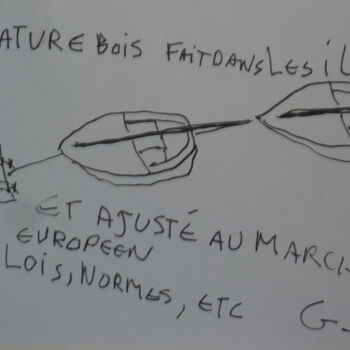 ATURE BOIS FAIT DANS LES IL
ET AJUSTÉ AU MARCH
EUROPEEN
LOIS, NORMES, ETC
G-